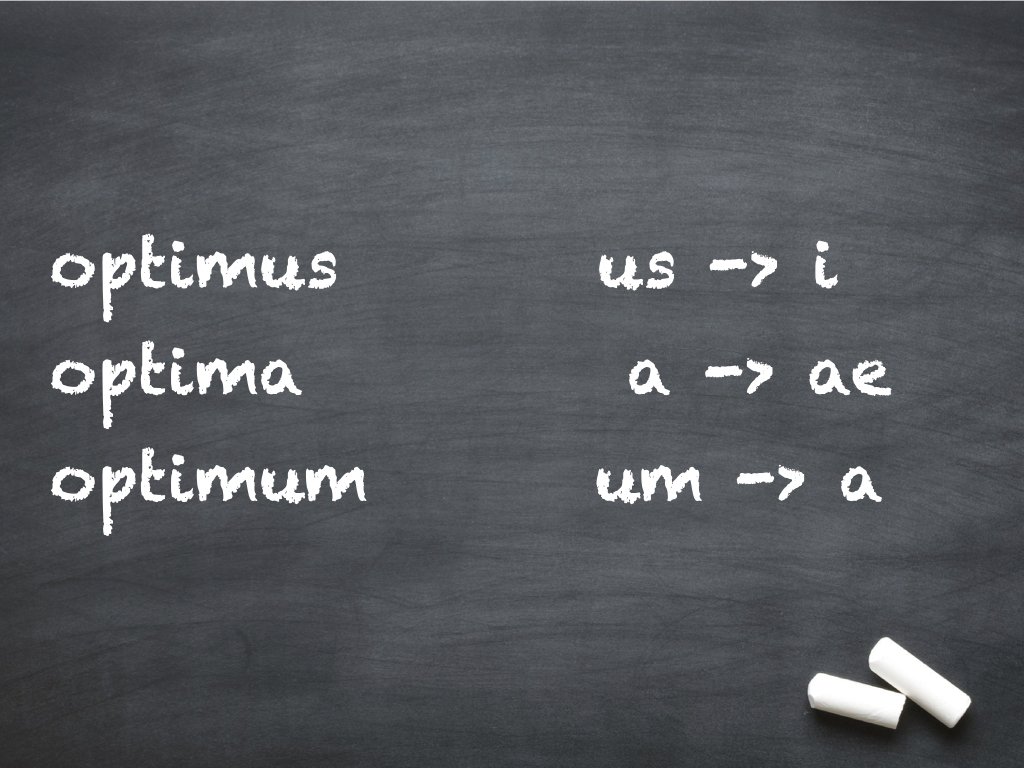 optimus us -> i
optima a -> ae
optimum um -> a